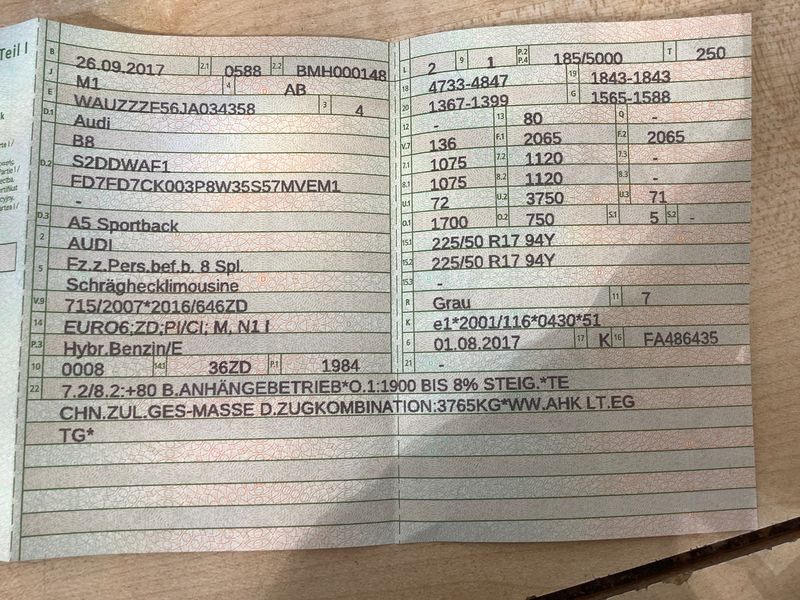 Teil I
B 26.09.2017 2.1 0588 2.2 BMH000148
J M1 4 AB
E WAUZZZF56JA034358 3 4
D.1 Audi
B8
D.2 S2DDWAF1
FD7FD7CK003P8W35S57MVEM1
-
D.3 A5 Sportback
2 AUDI
5 Fz.z.Pers.bef.b. 8 Spl.
Schräghecklimousine
V.9 715/2007*2016/646ZD
14 EURO6;ZD;PI/CI; M, N1 I
P.3 Hybr.Benzin/E
10 0008 14.1 36ZD P.1 1984
L 2 9 1 P.2 P.4 185/5000 T 250
18 4733-4847 19 1843-1843
20 1367-1399 G 1565-1588
12 - 13 80 Q -
V.7 136 F.1 2065 F.2 2065
7.1 1075 7.2 1120 7.3 -
8.1 1075 8.2 1120 8.3 -
U.1 72 U.2 3750 U.3 71
O.1 1700 O.2 750 S.1 5 S.2 -
15.1 225/50 R17 94Y
15.2 225/50 R17 94Y
15.3 -
R Grau 11 7
K e1*2001/116*0430*51
6 01.08.2017 17 K 16 FA486435
21 -
22 7.2/8.2:+80 B.ANHÄNGEBETRIEB*O.1:1900 BIS 8% STEIG.*TE
CHN.ZUL.GES-MASSE D.ZUGKOMBINATION:3765KG*WW.AHK LT.EG
TG*